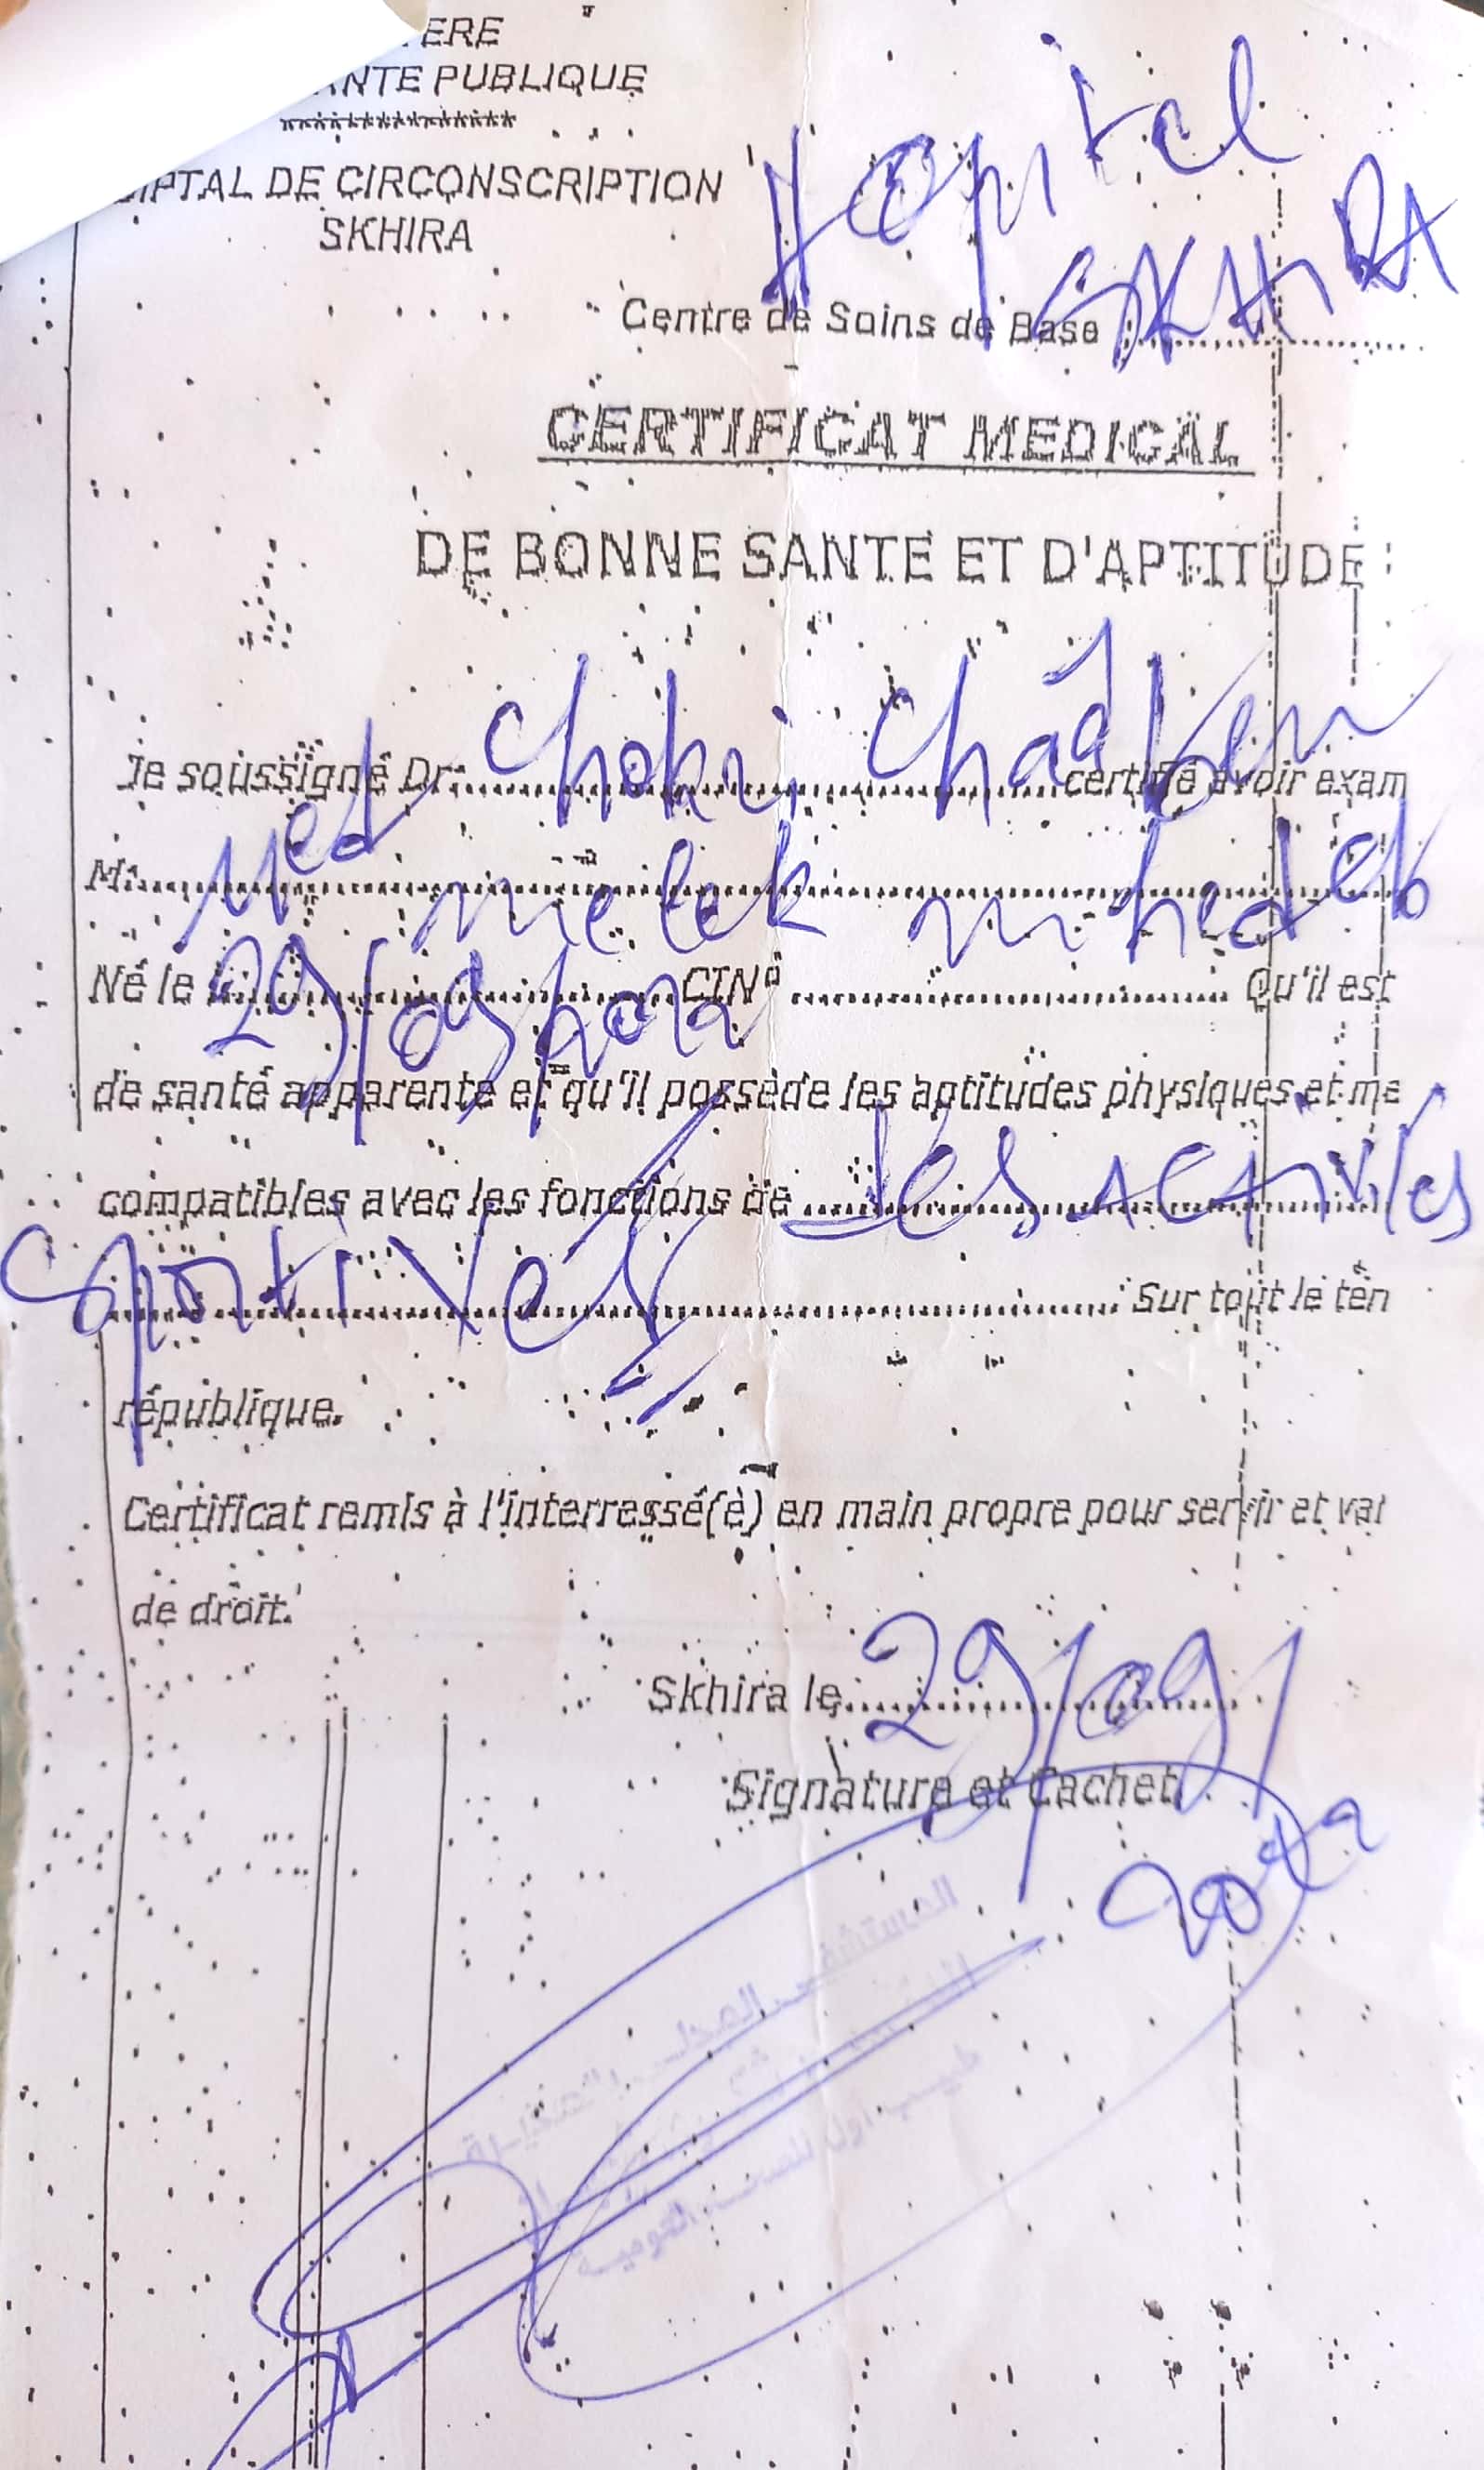 ERE
NTE PUBLIQUE
***************
IPTAL DE CIRCONSCRIPTION
SKHIRA
Hopital
SKHIRA
Centre de Soins de Base :
CERTIFICAT MEDICAL
DE BONNE SANTE ET D'APTITUDE :
Je soussigné Dr Chokri Chaâben certifie avoir exam
M. Med melek mhedeb
Né le 29/09/ CIN° Qu'il est
de santé apparente et qu'il possède les aptitudes physiques et me
compatibles avec les fonctions de des activités
sportives Sur tout le terr
république.
Certificat remis à l'interressé(è) en main propre pour servir et val
de droit.
Skhira le 29/09/
Signature et Cachet